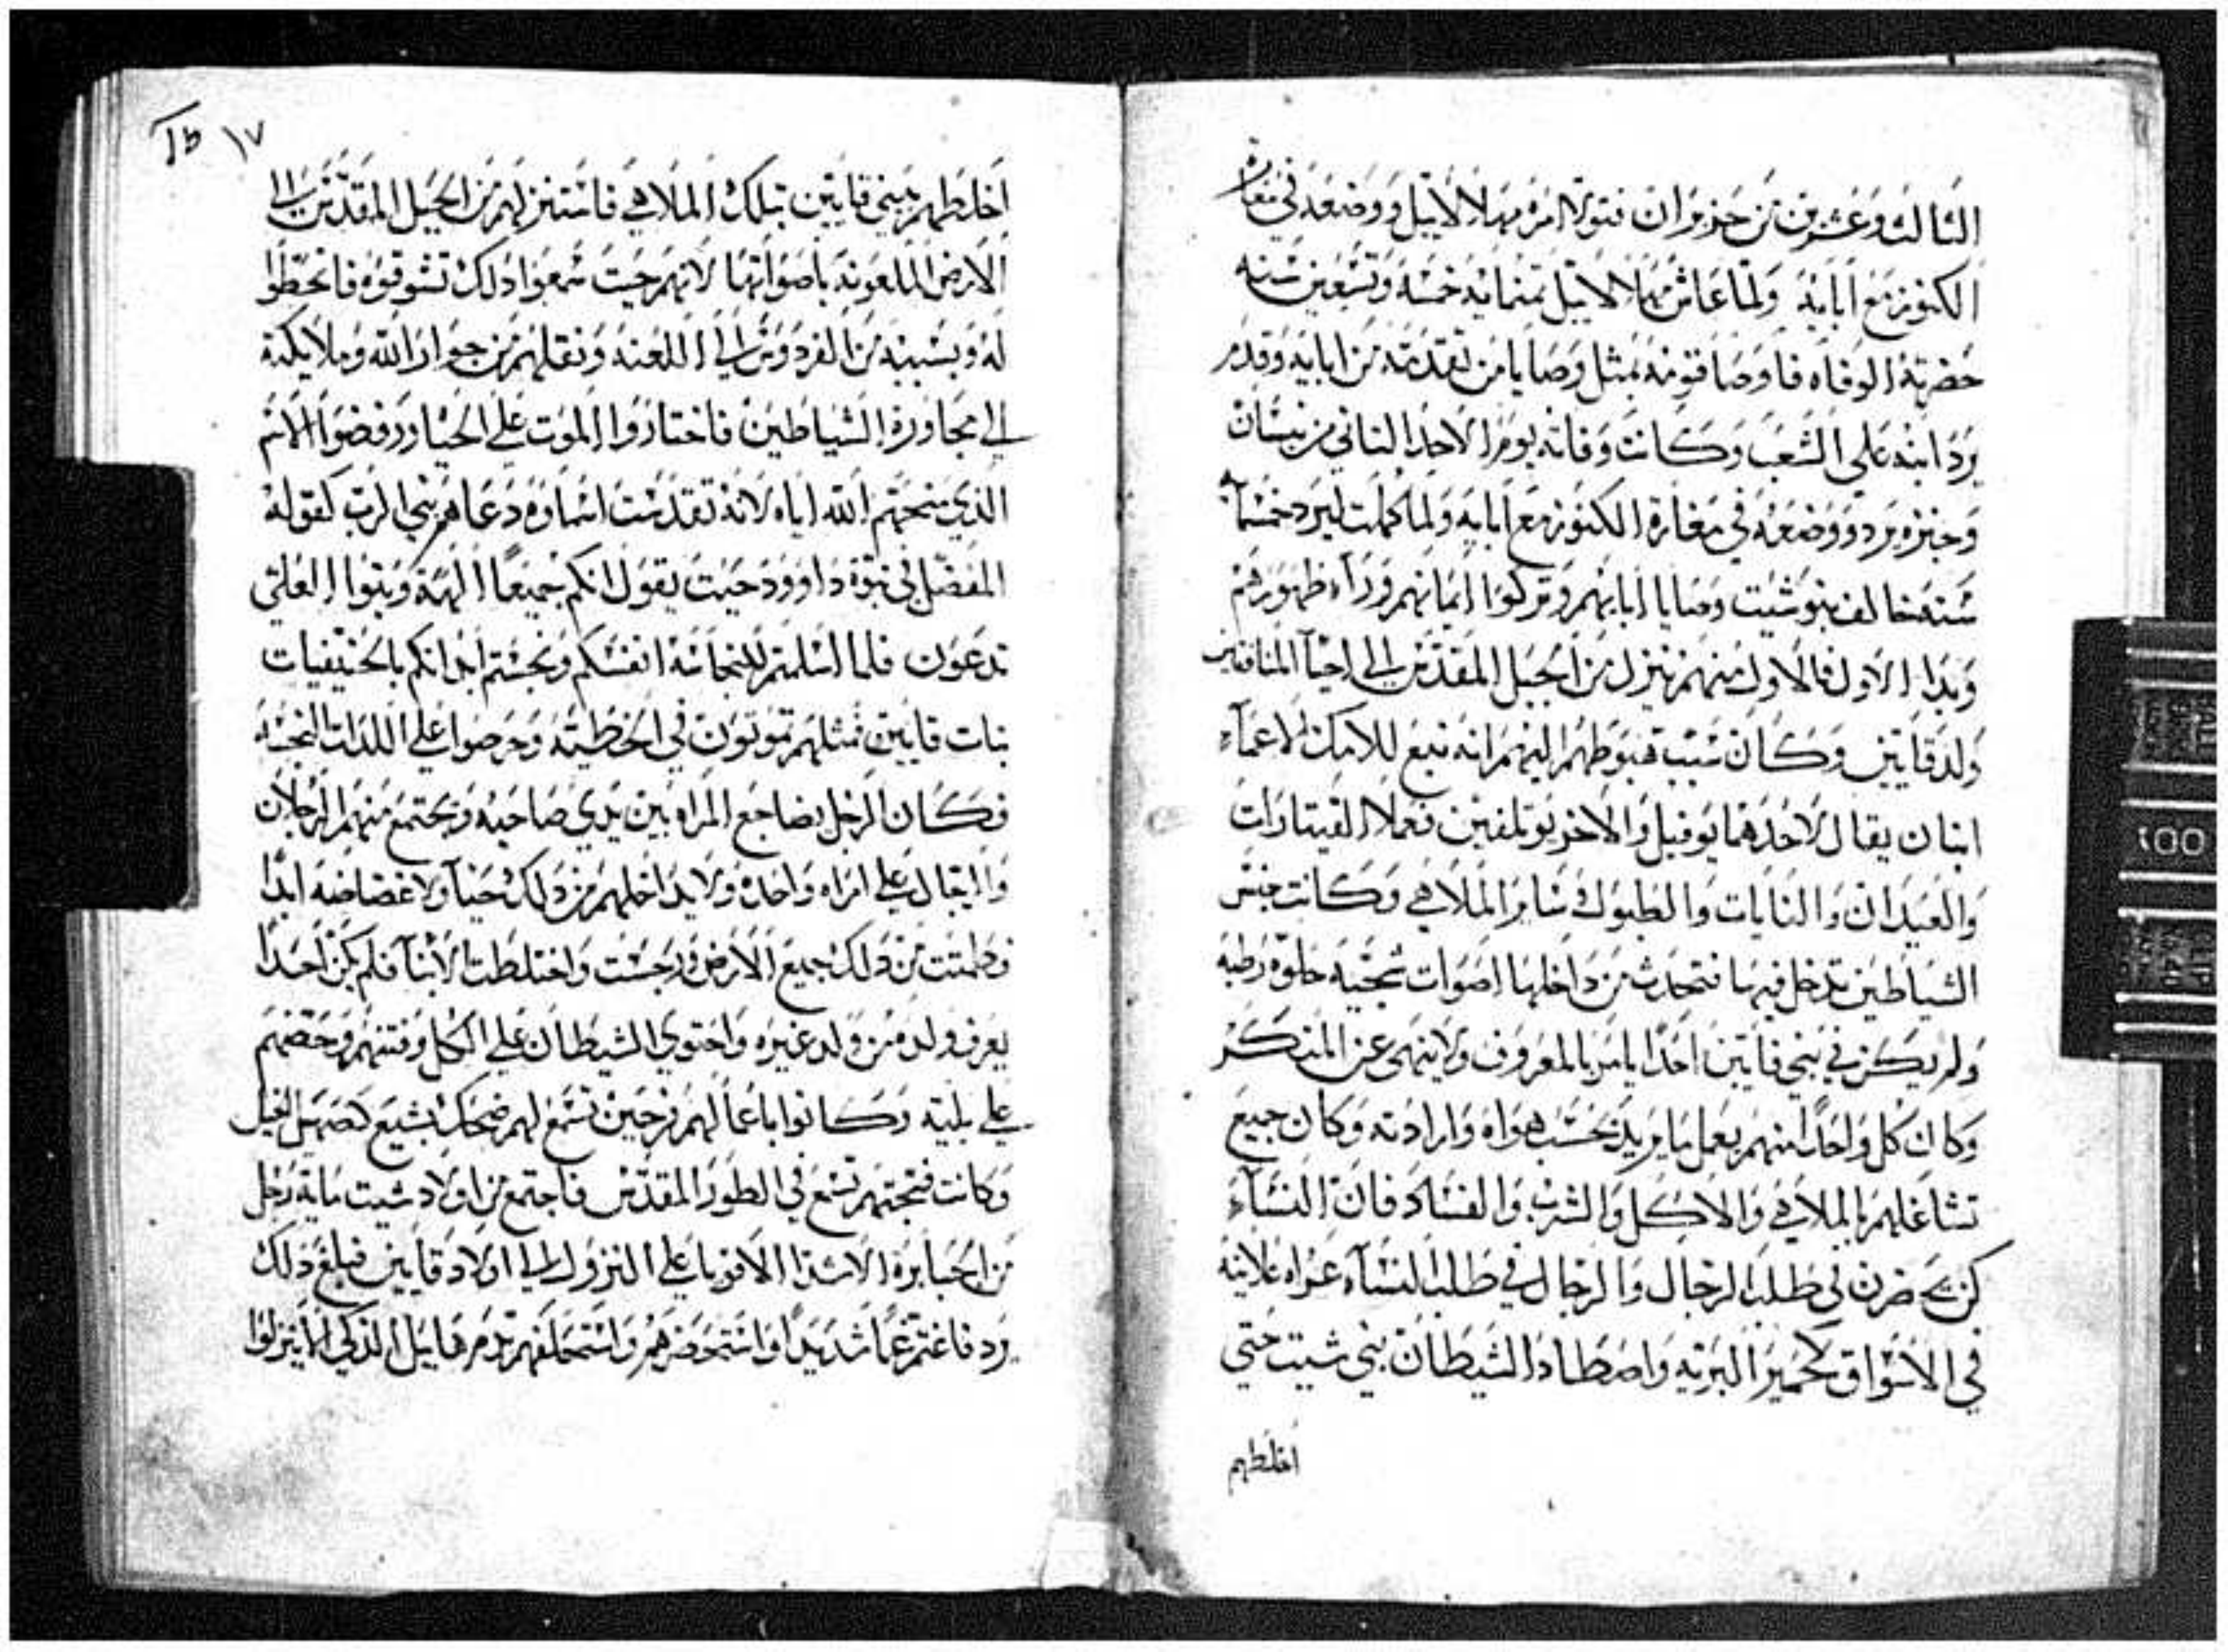 الثالث وعشرين من حزيران فتولا امره مهلالاييل ووضعه في مغارة
الكنوز مع ابايه ولما عاش مهلالاييل ثمنمايه خمسه وتسعين سنه
حضرته الوفاه فاوصا قومه بمثل وصايا من تقدمه من ابايه وقدم
يرد ابنه على الشعب وكانت وفاته يوم الاحد الثاني من نيسان
وجنزه يرد ووضعه في مغارة الكنوز مع ابايه ولما كملت ليرد خمسمايه
سنه خالف بنو شيت وصايا ابايهم وتركوا ايمانهم وراء ظهورهم
وبدا الاول فالاول منهم ينزل من الجبل المقدس الى احيآ المنافقين
ولد قايين وكان سبب هبوطهم اليهم انه نبع للامك الاعمآء
ابنان يقال لاحدهما يوفيل والاخر يوتلفين فعملا القيتارات
والعيدان والنايات والطبول وساير الملاهي وكانت جنس
الشياطين تدخل فيها فتحدث من داخلها اصوات شجيه حلوه رطبه
ولم يكن في بني قايين احدا يامر بالمعروف ولا ينهى عن المنكر
وكان كل واحدا منهم يعمل ما يريد بحسب هواه وارادته وكان جميع
تشاغلهم بالملاهي والاكل والشرب والفساد فان النسآء
كن يحضرن في طلب الرجال والرجال في طلب النسآء عراه علانيه
في الاسواق كحمير البريه واصطاد الشيطان بني شيت حتى
اخلطهم
١٧
اخلطهم ببني قايين بتلك الملاهي فاستنزلهم من الجبل المقدس الى
الارض الملعونه باصواتها لانهم حيت سمعوا ذلك تشوقوه فانحطوا
له وبسببه من الفردوس الى اللعنه ونقلهم من جوار الله وملايكته
الى مجاورة الشياطين فاختاروا الموت على الحيا ورفضوا الاسم
الذي منحهم الله اياه لانه تقدست اسماوه دعاهم بني الرب كقوله
المفضل في نبوة داوود حيت يقول انكم جميعا الهة وبنوا العلي
تدعون فلما اسلمتم للنجاسة انفسكم ونجستم ابدانكم بالحنيفيات
بنات قايين فمثلهم تموتون في الخطيه وحرصوا على اللذات النجسه
فكان الرجل يضاجع المراه بين يدي صاحبه ويجتمع منهم الرجلان
والرجال على امراه واحده ولا يداخلهم من ذلك حيآ ولا غضاضه ابدا
وطمتت من ذلك جميع الارض ورجست واختلطت الابنآ فلم يكن احدا
يعرف ولده من ولد غيره واحتوى الشيطان على الكل وفتنهم وحضهم
على بليته وكانوا باعمالهم فرحين تسمع لهم ضحك بشيع كصهل الخيل
وكانت ضجتهم تسمع في الطور المقدس فاجتمع من اولاد شيت مايه رجل
من الجبابره الاشدا الاقويا على النزول الى اولاد قايين فبلغ ذلك
يرد فاغتم غما شديدا واستحضرهم واستحلفهم بدم هابيل الذكي الا ينزلوا